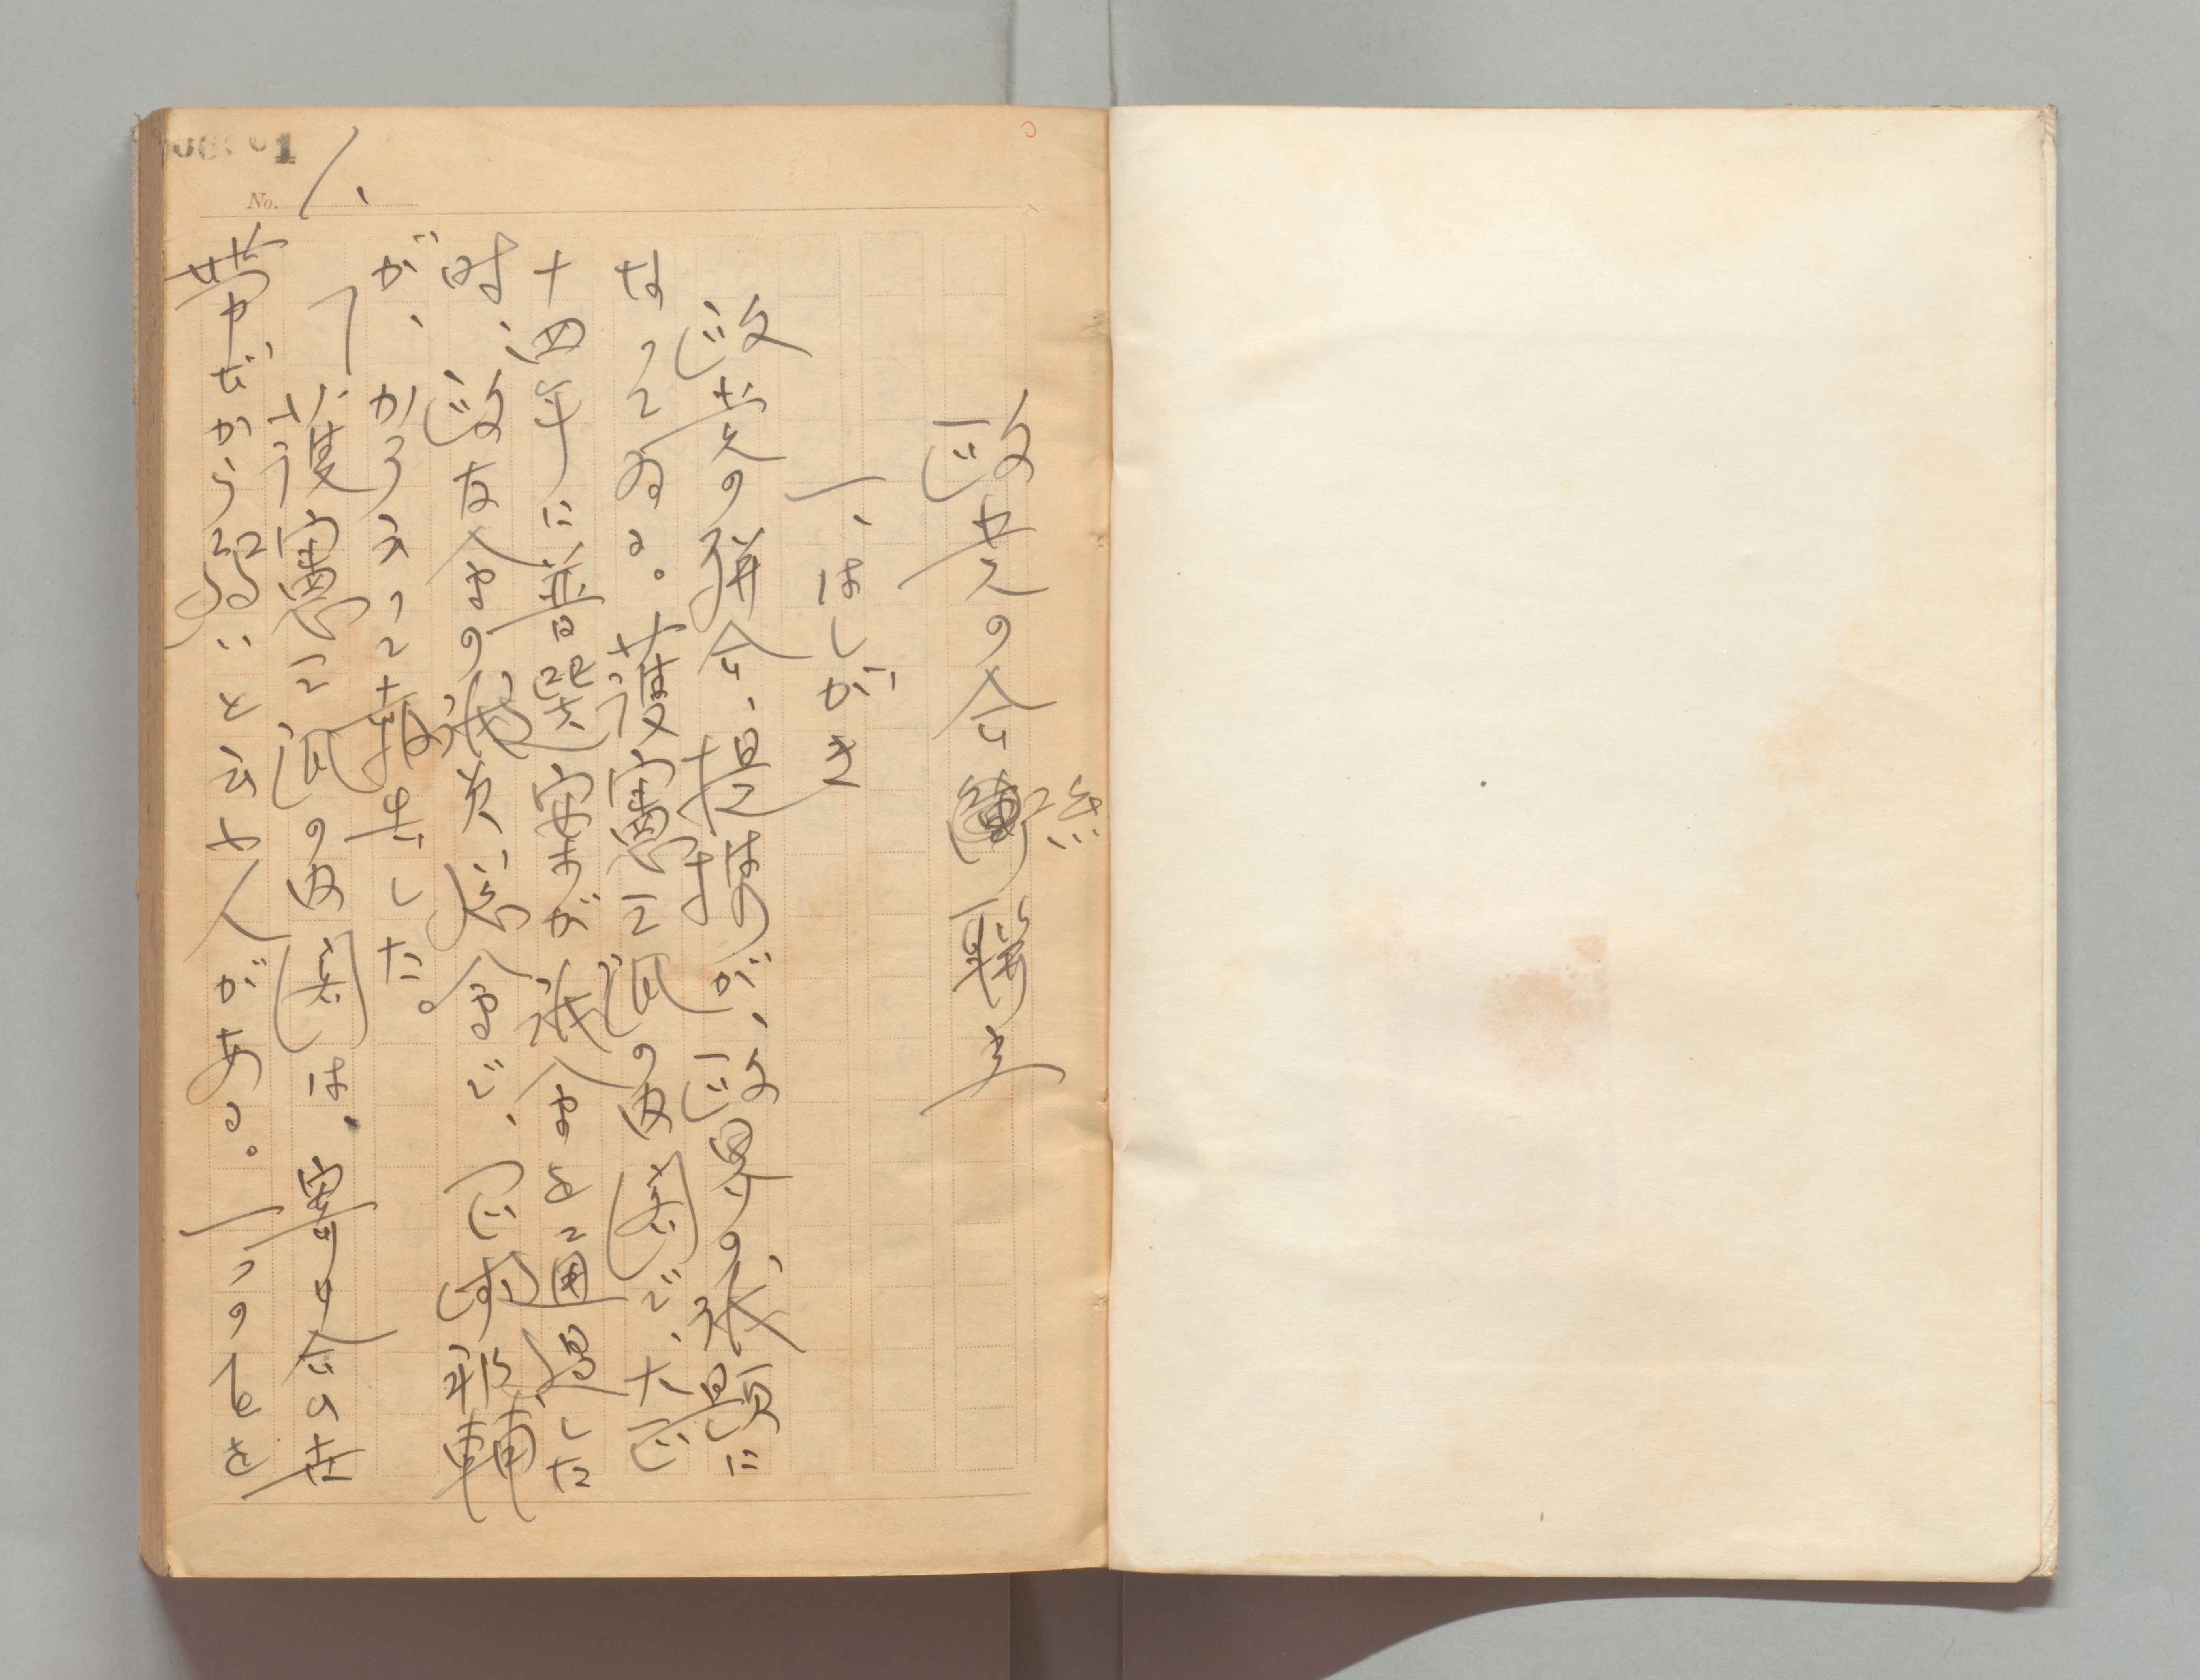 1、
政党の合従聯立
一、はしがき
政党の併合、提携が、政界の議題に
なつてゐる。護憲三派の内閣で、大正
十四年に普選案が議会を通過した
時、政友会の議員総会で、岡崎邦輔
が、かう云つて報告した。
「護憲三派の内閣は、寄り合ひ世
帯だから弱いと云ふ人がある。一つの
No.